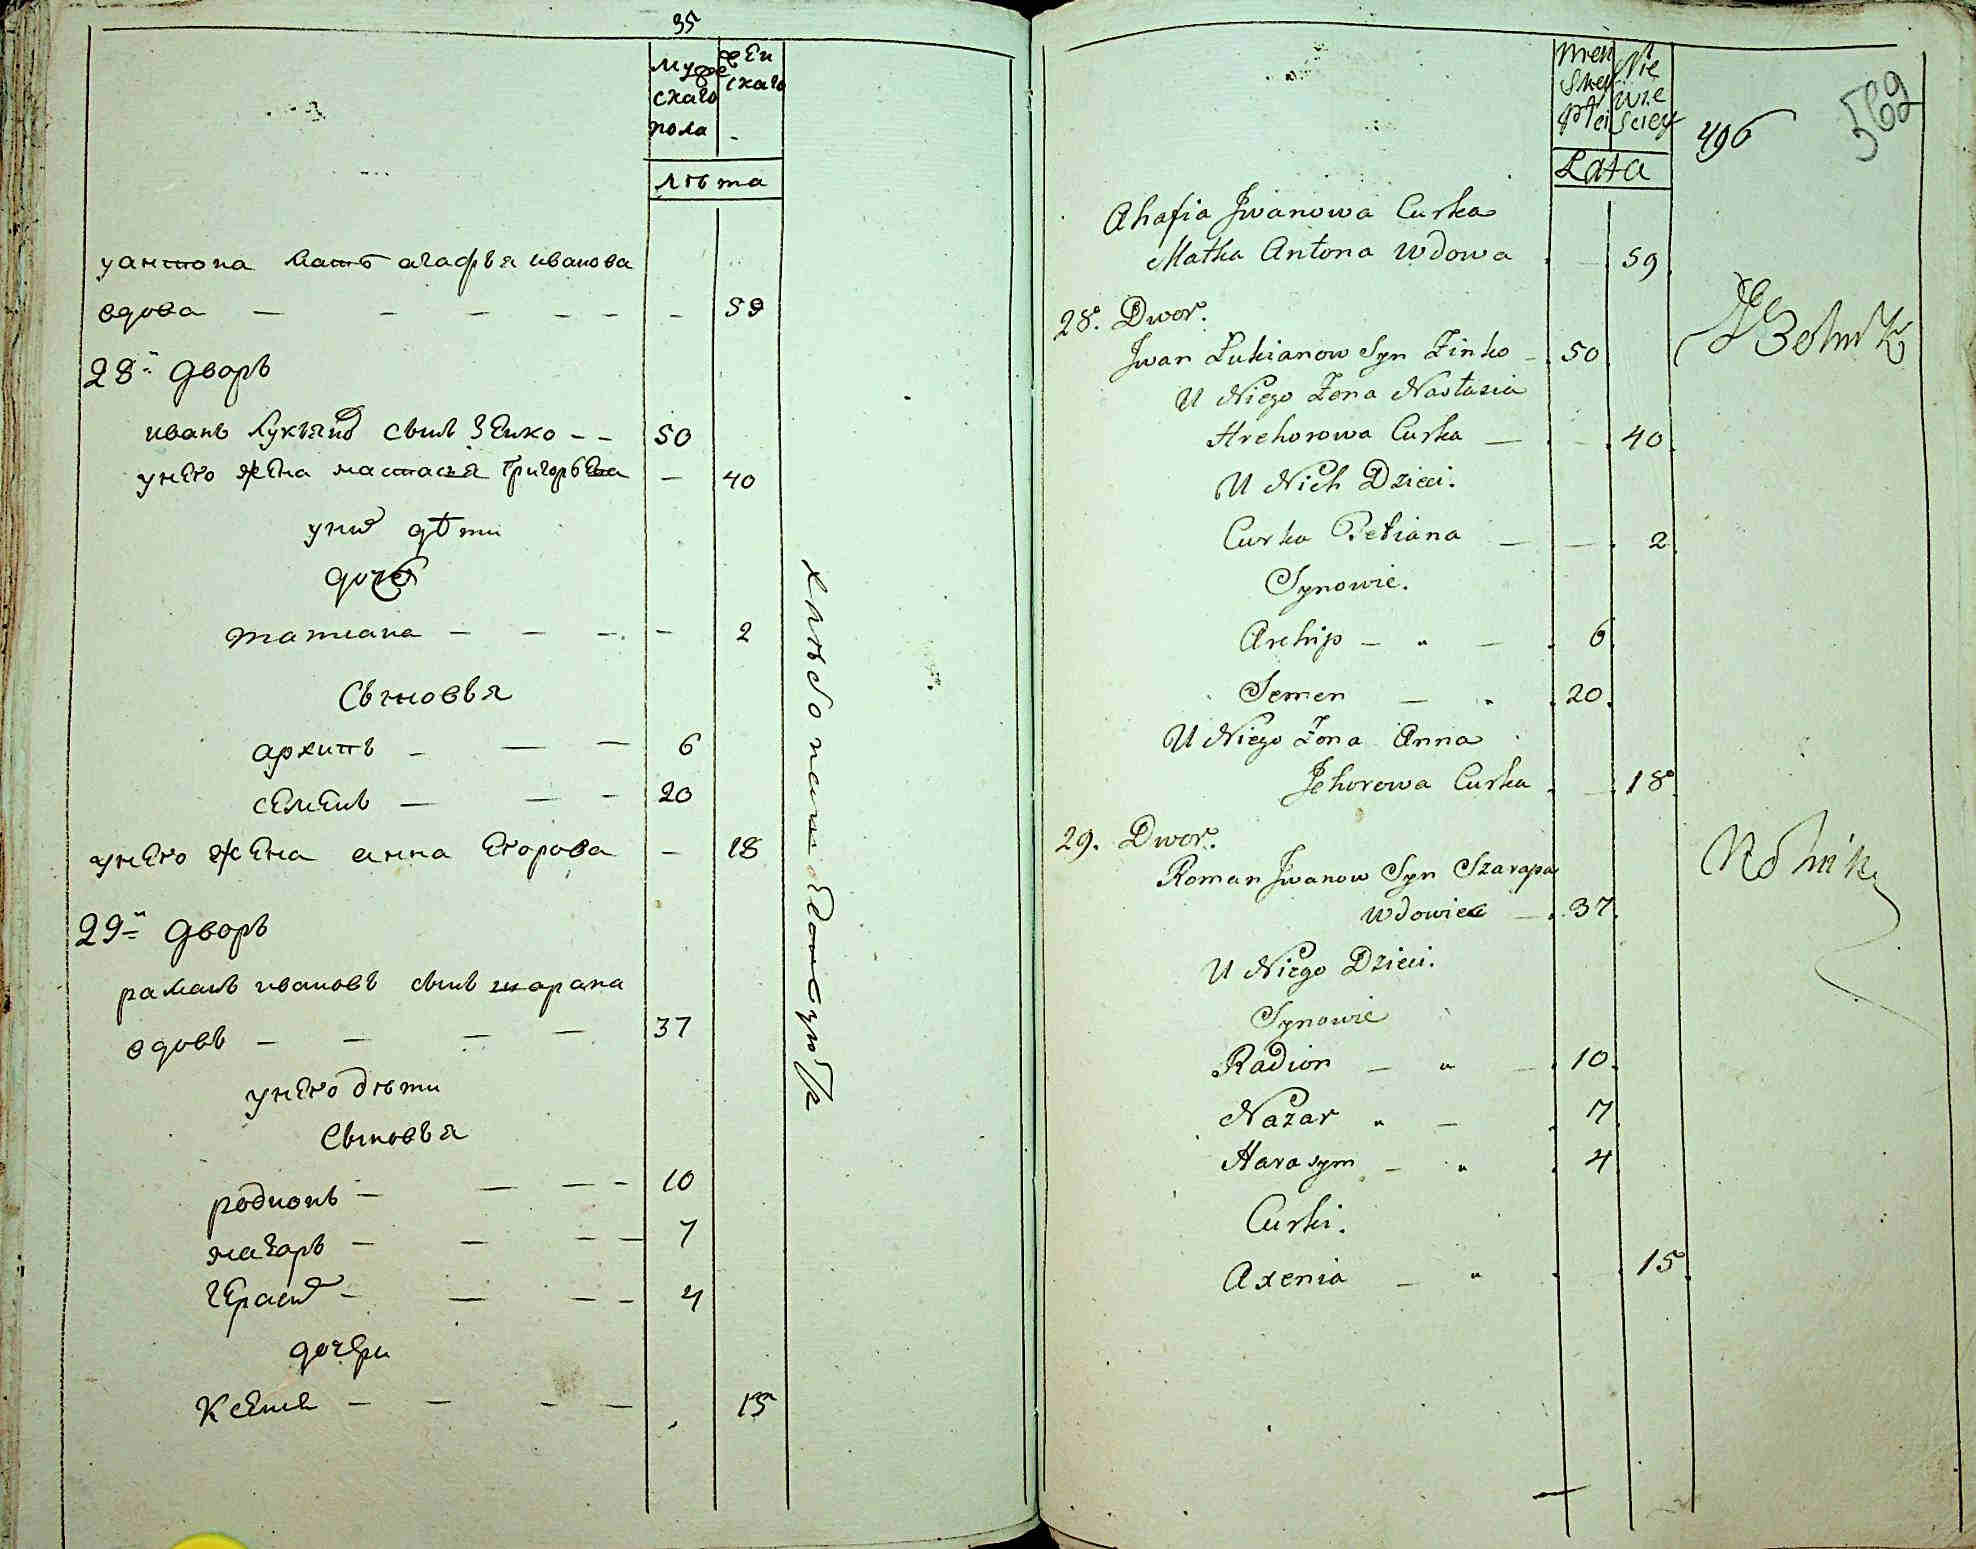 35
мужескаго пола
женскаго
лѣта
у антона мать агафья иванова
вдова — — — — — — 59
28й дворъ
иванъ лукьяновъ сынъ Зенко — — 50
у него жена настасья григорьева — 40
у них дѣти
дочь
татиана — — — — 2
Сыновья
архипъ — — — 6
семенъ — — — 20
у него жена анна егорова — 18
29й дворъ
раманъ ивановъ сынъ шарапа
вдовъ — — — — 37
у него дѣти
Сыновья
родионъ — — — — 10
назаръ — — — — 7
герасим — — — — 4
дочери
Ксенья — — — — 15
хлѣбопаш
569
496
Menskey płci
Niewiesciey
Lata
Ahafia Jwanowa Curka
Matka Antona Wdowa — 59
28. Dwor.
Jwan Łukianow Syn Zinko — 50
U Niego Żona Nastazia
Hrehorowa Curka — — 40
U Nich Dzieci.
Curka Tetiana — — 2
Synowie.
Archip — " — 6
Semen — " 20
U Niego Żona Anna
Jehorowa Curka — 18
Rolnik
29. Dwor.
Roman Jwanow Syn Szarapa
Wdowiec — 37
Rolnik
U Niego Dzieci.
Synowie
Radion — " — 10
Nazar " — 7
Harasym — " 4
Curki.
Axenia — " 15